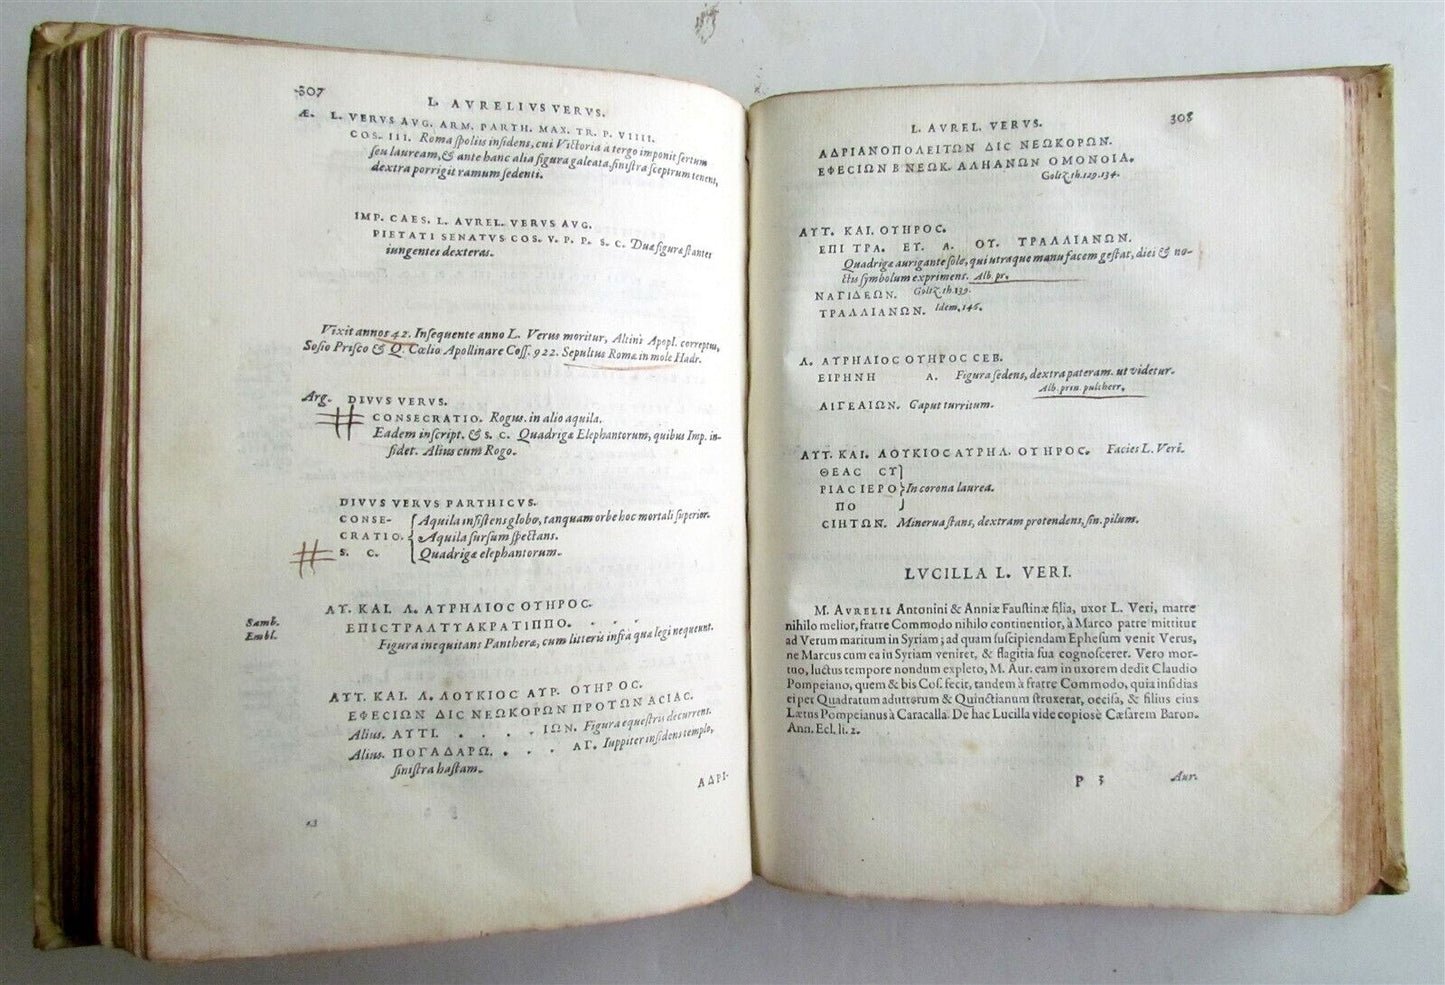 307
L. AVRELIVS VERVS.
Æ. L. VERVS AVG. ARM. PARTH. MAX. TR. P. VIIII.
COS. III. Roma ſpoliis inſidens, cui Victoria à tergo imponit ſertum
ſeu lauream, & ante hanc alia figura galeata, ſiniſtra ſceptrum tenens,
dextra porrigit ramum ſedenti.
IMP. CAES. L. AVREL. VERVS AVG.
PIETATI SENATVS COS. V. P. P. S. C. Duæ figuræ ſtantes
iungentes dexteras.
Vixit annos 42. Inſequente anno L. Verus moritur, Altini Apopl. correptus,
Soſio Priſco & Q. Cœlio Apollinare Coſſ. 922. Sepultus Romæ in mole Hadr.
Arg. DIVVS VERVS.
CONSECRATIO. Rogus. in alio aquila.
Eadem inſcript. & S. C. Quadrigæ Elephantorum, quibus Imp. in-
ſidet. Alius cum Rogo.
DIVVS VERVS PARTHICVS.
CONSE- Aquila inſiſtens globo, tanquam orbe hoc mortali ſuperior.
CRATIO. Aquila ſurſum ſpectans.
S. C. Quadrigæ elephantorum.
ΑΥ. ΚΑΙ. Λ. ΑΥΡΗΛΙΟC ΟΥΗΡΟC.
Samb.
Embl.
ΕΠΙCΤΡΑΛΤΥΑΚΡΑΤΙΠΠΟ. . . .
Figura inequitans Pantheræ, cum litteris infrà quæ legi nequeunt.
ΑΥΤ. ΚΑΙ. Λ. ΛΟΥΚΙΟC ΑΥΡ. ΟΥΗΡΟC.
ΕΦΕCΙΩΝ ΔΙC ΝΕΩΚΟΡΩΝ ΠΡΟΤΩΝ ΑCΙΑC.
Alius. ΑΥΤΙ. . . . . ΙΩΝ. Figura equeſtris decurrent.
Alius. ΠΟΓΑΔΑΡΩ. . . . ΑΓ. Iuppiter inſidens templo,
ſiniſtra haſtam.
ΑΔΡΙ-
308
L. AVREL. VERVS.
ΑΔΡΙΑΝΟΠΟΛΕΙΤΩΝ ΔΙC ΝΕΩΚΟΡΩΝ.
ΕΦΕCΙΩΝ Β ΝΕΩΚ. ΑΛΗΑΝΩΝ ΟΜΟΝΟΙΑ.
Goltz. th. 129. 134.
ΑΥΤ. ΚΑΙ. ΟΥΗΡΟC.
ΕΠΙ ΤΡΑ. ΕΥ. Α. ΟΥ. ΤΡΑΛΛΙΑΝΩΝ.
Quadrigæ aurigante ſole, qui utraque manu facem geſtat, diei & no-
ctis ſymbolum exprimens. Alb. pr.
ΝΑΓΙΔΕΩΝ. Goltz. th. 139.
ΤΡΑΛΛΙΑΝΩΝ. Idem, 146.
Λ. ΑΥΡΗΛΙΟC ΟΥΗΡΟC CΕΒ.
ΕΙΡΗΝΗ Α. Figura ſedens, dextra pateram. ut videtur.
Alb. prin. pulcherr.
ΑΙΓΕΑΙΩΝ. Caput turritum.
ΑΥΤ. ΚΑΙ. ΛΟΥΚΙΟC ΑΥΡΗΛ. ΟΥΗΡΟC. Facies L. Veri.
ΘΕΑC CΥ
ΡΙΑC ΙΕΡΟ In corona laurea.
ΠΟ
CΙΗΤΩΝ. Minerua ſtans, dextram protendens, ſin. pilum.
LVCILLA L. VERI.
M. AVRELII Antonini & Anniæ Fauſtinæ filia, uxor L. Veri, matre
nihilo melior, fratre Commodo nihilo continentior, à Marco patre mittitur
ad Verum maritum in Syriam; ad quam ſuſcipiendam Ephesum venit Verus,
ne Marcus cum ea in Syriam veniret, & flagitia ſua cognoſceret. Vero mor-
tuo, luctus tempore nondum expleto, M. Aur. eam in uxorem dedit Claudio
Pompeiano, quem & bis Coſ. fecit, tandem à fratre Commodo, quia inſidias
ei per Quadratum adulterum & Quinctianum ſtruxerat, occiſa, & filius eius
Lætus Pompeianus à Caracalla. De hac Lucilla vide copiosè Cæſarem Baron.
Ann. Ecl. li. 2.
P 3
Aur.